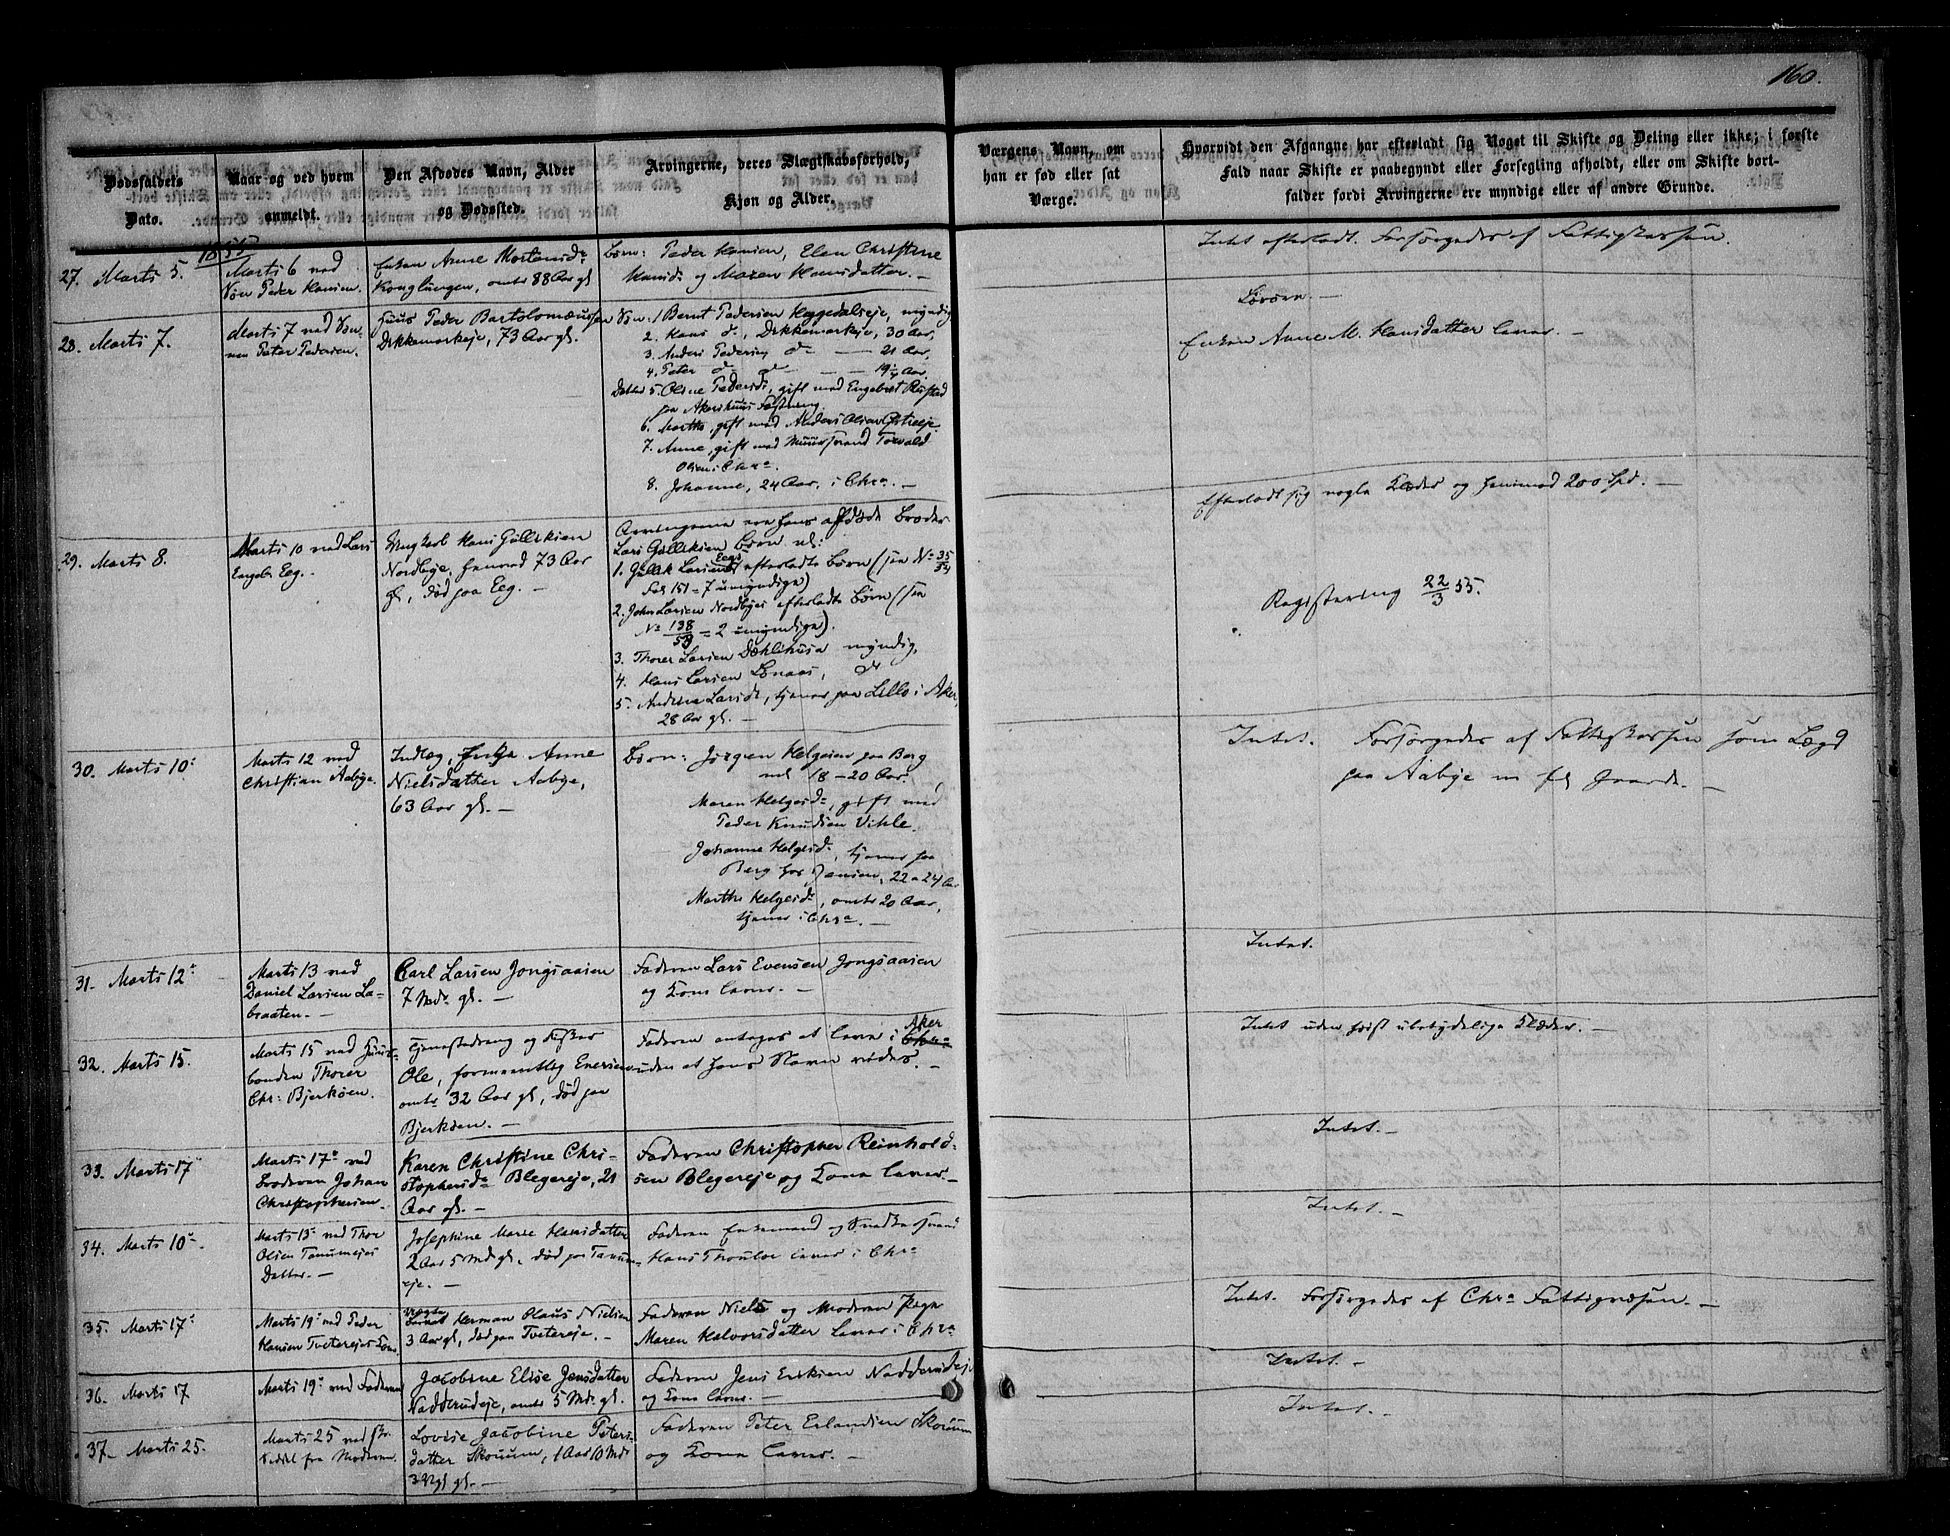 160.
Dødsfaldets
Dato.
Naar og ved hvem
anmeldt.
Den Afdødes Navn, Alder
og Dødssted.
Arvingerne, deres Slægtskabsforhold,
Kjøn og Alder.
Værgens Navn, om
han er fød eller sat
Værge.
Hvorvidt den Afgangne har efterladt sig Noget til Skifte og Deling eller ikke; i første
Fald naar Skifte er paabegyndt eller Forsegling afholdt, eller om Skifte bort-
falder fordi Arvingerne ere myndige eller af andre Grunde.
1855
27. Marts 5.
Marts 6 ved
Søn Peder Hansen.
Enken Anne Mortensdr
Konglungen, omtr 88 Aar gl
Børn: Peder Hansen, Elen Christine
Hansdr og Maren Hansdatter. —
Intet efterladt. Forsørgedes af Fattigkassen.
28. Marts 7.
Marts 7 ved Søn-
nen Peter Pedersen.
Huus Peder Bartolomæussen
Dikkemarkeje, 73 Aar gl.
Søn: 1 Bernt Pedersen Heggedalseje, myndig
2. Hans do, Dikkemarkeje, 30 Aar,
3. Anders Pedersen do — 21 Aar,
4. Peter do do — — 19 1/4 Aar.
Døttre 5. Oline Pedersdr, gift med Engebret Rustad
paa Akershuus Fæstning
6. Marthe, gift med Anders Olsen
7. Anne, gift med Muursvend Torvald
Olsen i Chra.
8. Johanne, 24 Aar, i Chra. —
Enken Anne M. Hansdatter lever. —
29. Marts 8.
Marts 10 ved Lars
Engebr Eeg. —
Ungkarl Hans Gulliksen
Nordbye, henved 73 Aar
gl, død paa Eeg. —
Arvingerne ere hans afdøde Broder
Lars Gulliksen Børn nl:
1. Gullik Larsen Eegs efterladte Børn (sen No 35/54
Fol 151 = 7 umyndige)
2. John Larsen Nordbyes efterladte Børn (sen
No 138/53 = 2 umyndige).
3. Thorer Larsen Dæhlihusa myndig,
4. Hans Larsen Lønaas, do
5. Andrea Larsdr, tjener paa Lille i Aker,
28 Aar gl. —
Efterladt sig nogle Klæder og henimod 200 Spd. —
Registering 22/3 55.
30. Marts 10de
Marts 12 ved
Christian Aabye.
Indlæg, Enke Anne
Nielsdatter Aabye,
63 Aar gl. —
Børn: Jørgen Helgesen paa Berg
nl 18 – 20 Aar.
Maren Helgesdr, gift med
Peder Knudsen Vihle.
Johanne Helgesdr, tjener paa
Berg hos Jansen, 22 a 24 Aar
Marthe Helgesdr, omtr 20 Aar,
tjener i Chra. —
Intet. Forsørgedes af Fattigkassen som Lægd
paa Aabye m fl Gaarde. —
31. Marts 12te
Marts 13 ved
Daniel Larsen La-
braaten. —
Carl Larsen Jongsaasen
7 Mdr gl. —
Faderen Lars Evensen Jongsaasen
og Kone lever. —
Intet.
32. Marts 15.
Marts 15 ved Huus-
bonden Thorer
Chr: Bjerkøen.
Tjenestedreng og Fisker
Ole, formeentlig Enersen
omtr 32 Aar gl, død paa
Bjerkøen. —
Faderen antages at leve i Aker Chra
uden at hans Navn vides. —
Intet uden høist ubetydelige Klæder. —
33. Marts 17
Marts 17de ved
Broderen Johan
Christophersen. —
Karen Christine Chri-
stophersdr Blegereje, 21
Aar gl. —
Faderen Christopher Reinhold-
sen Blegereje og Kone lever. —
Intet. —
34. Marts 10de
Marts 13de ved Thor
Olsen Tanumejes
Datter. —
Josephine Marie Hansdatter
2 Aar 5 Md gl., død paa Tanum-
eje. —
Faderen Enkemand og Snedkersvend
Hans Thoulor lever i Chra
Intet. —
35. Marts 17de
Marts 19de ved Peder
Hansen Tveterejes Kone
uægte
Barnet Herman Olaus Nielsen
3 Aar gl, død paa Tvetereje. —
Faderen Niels og Moderen Pige
Maren Halvorsdatter lever i Chra
Intet. Forsørgedes af Chra Fattigvæsen. —
36. Marts 17
Marts 19de ved Faderen
Jacobine Elise Jensdatter
Nadderudeje, omtr 5 Mdr gl.
Faderen Jens Eriksen Nadderudeje
og Kone lever. —
Intet. —
37. Marts 25.
Marts 25 ved
Seddel fra Moderen
Lovise Jacobine Peters-
datter Skouum, 1 Aar 10 Md
3 Ugl gl. —
Faderen Peter Erlandsen Skouum
og Kone lever. —
Intet. —